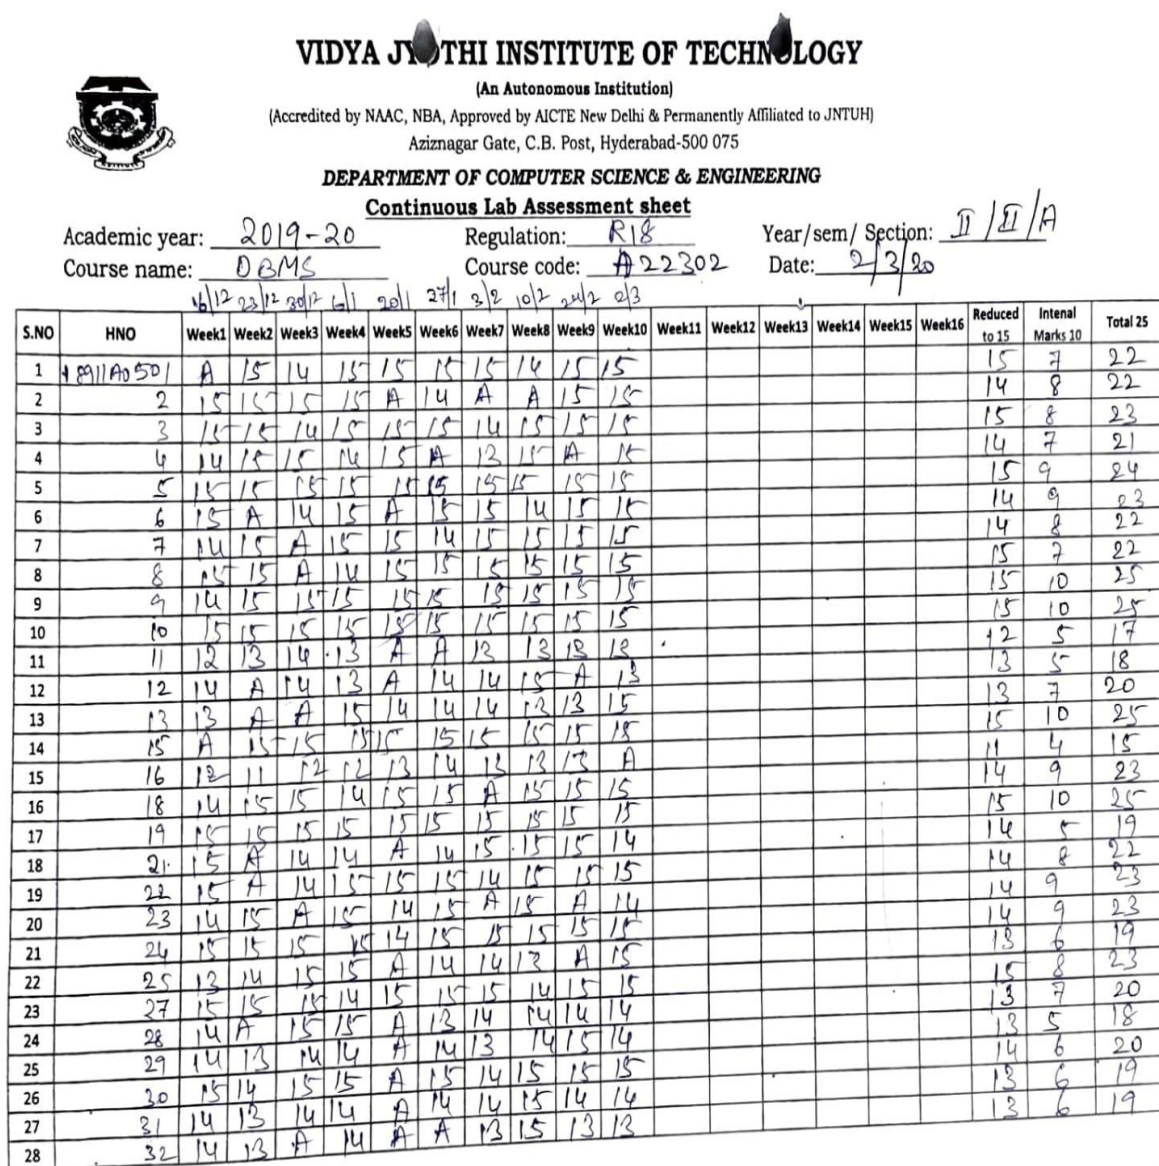 VIDYA JYOTHI INSTITUTE OF TECHNOLOGY
(An Autonomous Institution)
(Accredited by NAAC, NBA, Approved by AICTE New Delhi & Permanently Affiliated to JNTUH)
Aziznagar Gate, C.B. Post, Hyderabad-500 075
DEPARTMENT OF COMPUTER SCIENCE & ENGINEERING
Continuous Lab Assessment sheet
Academic year: 2019-20 Regulation: R18 Year/sem/ Section: II/II/A
Course name: DBMS Course code: A22302 Date: 2/3/20
16/12 23/12 30/12 6/1 20/1 27/1 3/2 10/2 24/2 2/3
S.NO HNO Week1 Week2 Week3 Week4 Week5 Week6 Week7 Week8 Week9 Week10 Week11 Week12 Week13 Week14 Week15 Week16 Reduced to 15 Intenal Marks 10 Total 25
1 18911A0501 A 15 14 15 15 15 15 14 15 15 15 7 22
2 2 15 15 15 15 A 14 A A 15 15 14 8 22
3 3 15 15 14 15 15 15 14 15 15 15 15 8 23
4 4 14 15 15 14 15 A 13 15 A 15 14 7 21
5 5 15 15 15 15 15 15 15 15 15 15 15 9 24
6 6 15 A 14 15 A 15 15 14 15 15 14 9 23
7 7 14 15 A 15 15 14 15 15 15 15 14 8 22
8 8 15 15 A 14 15 15 15 15 15 15 15 7 22
9 9 14 15 15 15 15 15 15 15 15 15 15 10 25
10 10 15 15 15 15 15 15 15 15 15 15 15 10 25
11 11 12 13 14 13 A A 13 13 13 13 12 5 17
12 12 14 A 14 13 A 14 14 15 A 13 13 5 18
13 13 13 A A 15 14 14 14 13 13 15 13 7 20
14 15 A 15 15 15 15 15 15 15 15 15 15 10 25
15 16 12 11 12 12 13 14 13 13 13 A 11 4 15
16 18 14 15 15 14 15 15 A 15 15 15 14 9 23
17 19 15 15 15 15 15 15 15 15 15 15 15 10 25
18 21 15 A 14 14 A 14 15 15 15 14 14 5 19
19 22 15 A 14 15 15 15 14 15 15 15 14 8 22
20 23 14 15 A 15 14 15 A 15 A 14 14 9 23
21 24 15 15 15 15 14 15 15 15 15 15 14 9 23
22 25 13 14 15 15 A 14 14 13 A 15 13 6 19
23 27 15 15 15 14 15 15 15 14 15 15 15 8 23
24 28 14 A 15 15 A 13 14 14 14 14 13 7 20
25 29 14 13 14 14 A 14 13 14 15 14 13 5 18
26 30 15 14 15 15 A 15 14 15 15 15 14 6 20
27 31 14 13 14 14 A 14 14 15 14 14 13 6 19
28 32 14 13 A 14 A A 13 15 13 13 13 6 19